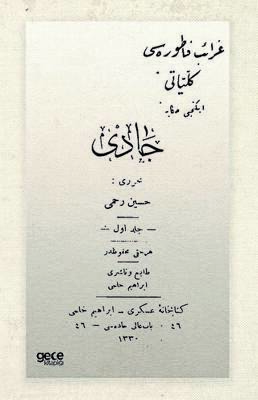 غرائب فاطوره‌سی
كلّیاتی
ایكنجی حكایه
جادی
محرری :
حسین رحمی
— جلد اول —
هر حقی محفوظدر
طابع و ناشری
ابراهیم حلمی
كتابخانهٔ عسكری – ابراهیم حلمی
٤٦ – باب عالی جاده‌سی – ٤٦
١٣٣٠
gece
kitaplığı